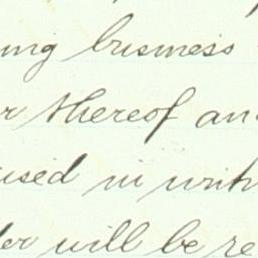 ing business
r thereof an
used in writ
der will be re